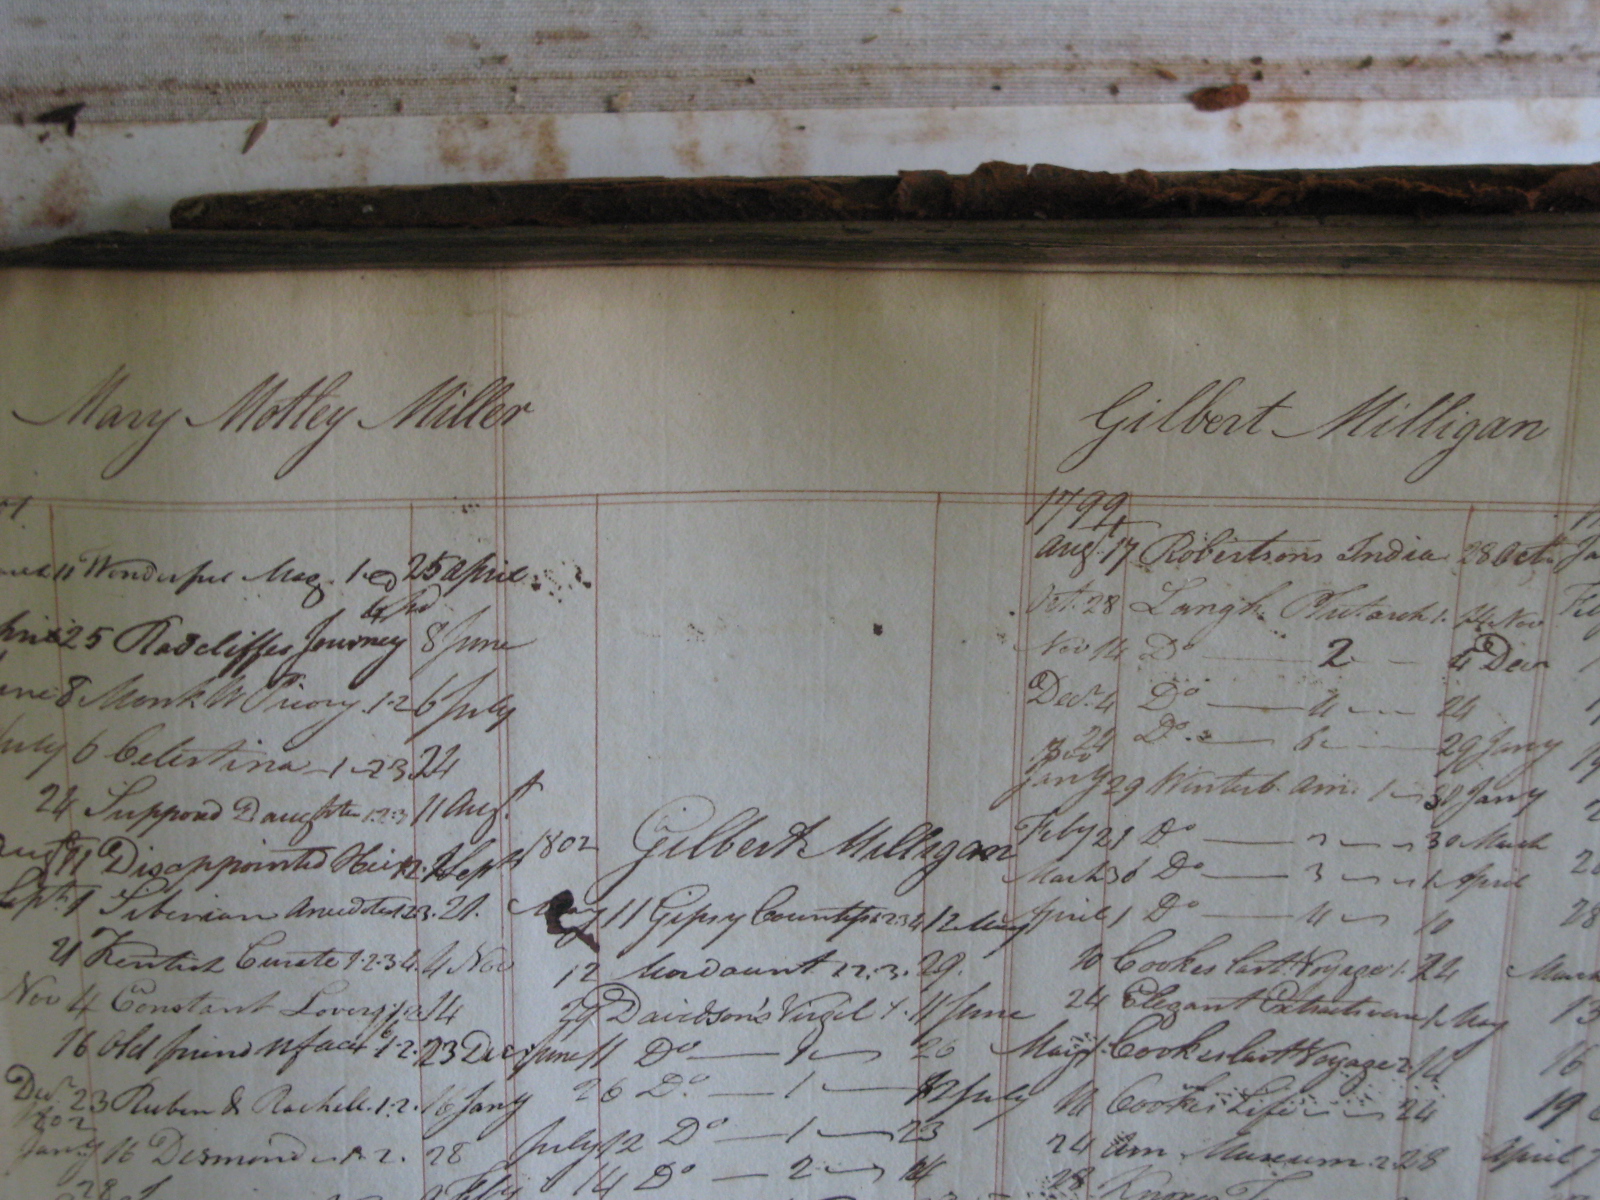 Mary Motley Miller
11 Wonderful Mag. 1 25 April
25 Radcliffes Journey 8 June
8 Monk W Priory 1-2 6 July
July 6 Celestina 1-2 3 24
24 Supposd Daughter 1 2 3 11 Augt
11 Disappointed Heir 1 2 Sept
Sept 1 Siberian Anecdotes 1 2 3. 21.
21 Kentish Curate 1. 2. 3 4. 4 Nov
Nov 4 Constant Lovers 1. 2 14
16 Old friend N face 1. 2. 23 Decr
Decr 23 Ruben & Rachell. 1. 2. 16 Jany
1802
Jany 16 Desmond 1. 2. 28
28
1802 Gilbert Milligan
May 11 Gipsy Countess 1 2 3 4 12 May
12 Mordaunt 1 2. 3. 29.
29 Davidson's Virgil 1. 11 June
June 11 Do 1 26
26 Do 1 12 July
July 12 Do 1 23
14 Do 2
Gilbert Milligan
1799
Augt 17 Robertsons India 28 Oct
Oct. 28 Langh. Plutarch 1. 14 Nov
Nov 14 Do 2 4 Decr
Decr 4 Do 4 24
24 Do 6 29 Jany
1800
Jany 29 Winterb. Am. 1 30 Jany
Feby 21 Do 2 30 March
March 30 Do 3 1 April
April 1 Do 4 10
10 Cookes last Voyage 1. 24
24 Elegant Extracts 1 May
May 1 Cookes last Voyage 2 14
14 Cookes Life 24
24 Am. Museum. 2 28
28